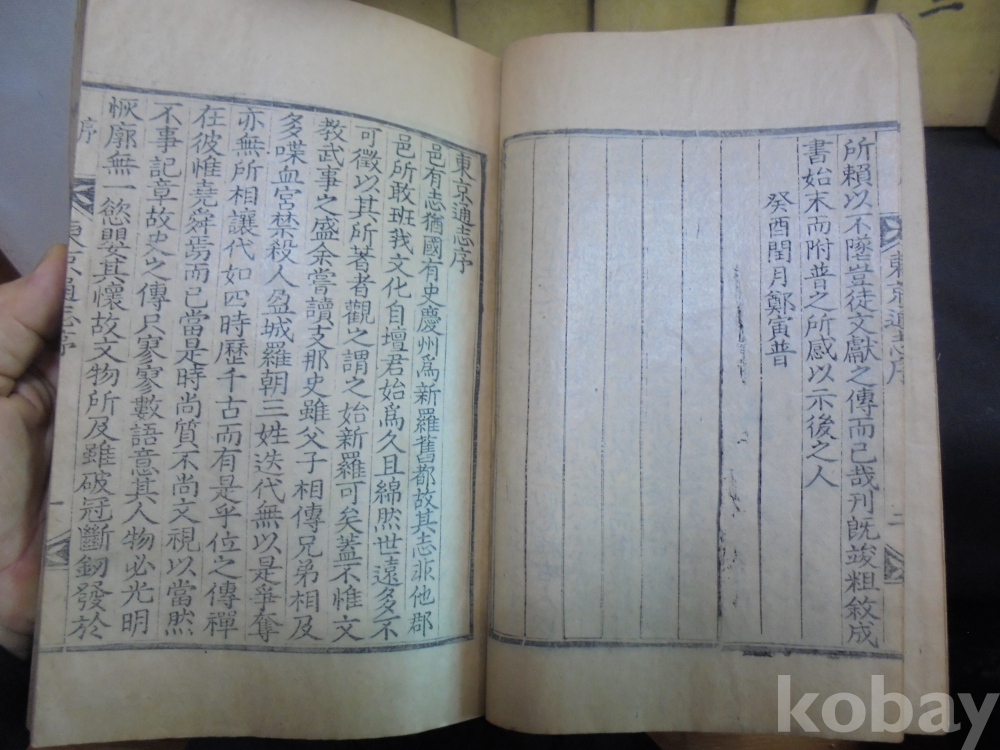 所賴以不墜豈徒文獻之傳而已哉刊旣竣粗敘成
書始末而附普之所感以示後之人
癸酉閏月鄭寅普
東京通志序
二
東京通志序
邑有志猶國有史慶州爲新羅舊都故其志非他郡
邑所敢班我文化自壇君始爲久且綿然世遠多不
可徵以其所著者觀之謂之始新羅可矣蓋不惟文
教武事之盛余嘗讀支那史雖父子相傳兄弟相及
多喋血宮禁殺人盈城羅朝三姓迭代無以是爭奪
亦無所相讓代如四時歷千古而有是乎位之傳禪
在彼惟堯舜焉而已當是時尚質不尚文視以當然
不事記章故史之傳只寥寥數語意其人物必光明
恢廓無一慾嬰其懷故文物所及雖破冠斷釰發於
序
東京通志序
一
二
kobay